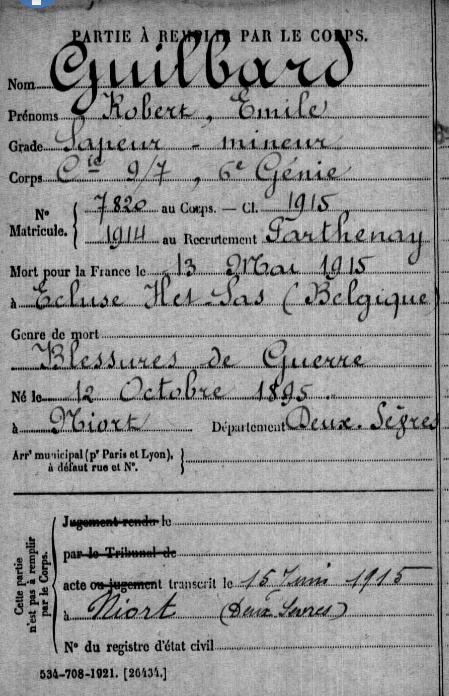 PARTIE À REMPLIR PAR LE CORPS.
Nom Guilbard
Prénoms Robert, Emile
Grade Sapeur - mineur
Corps Cie 9/7, 6e Génie
N° Matricule. { 7820 au Corps. — Cl. 1915
1914 au Recrutement Parthenay
Mort pour la France le 13 Mai 1915
à Ecluse Het-Sas (Belgique)
Genre de mort
Blessures de Guerre
Né le 12 Octobre 1895
à Niort Département Deux-Sèvres
Arrt municipal (pr Paris et Lyon), à défaut rue et N°. }
Cette partie n'est pas à remplir par le Corps.
Jugement rendu le
par le Tribunal de
acte ou jugement transcrit le 15 Juin 1915
à Niort (Deux Sèvres)
N° du registre d'état civil
534-708-1921. [26434.]